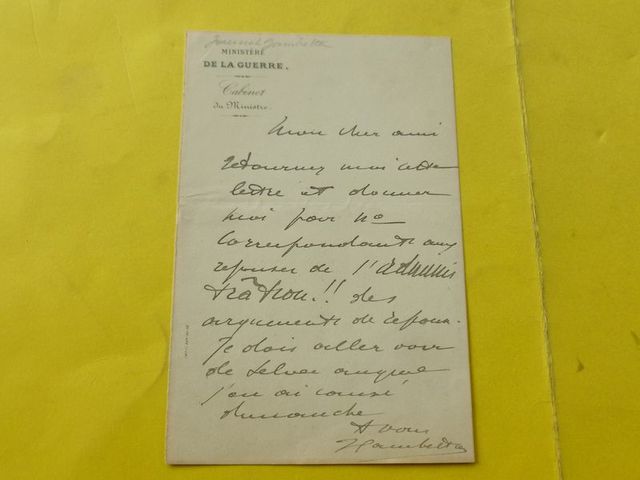 Journal Gambetta
MINISTÈRE
DE LA GUERRE.
Cabinet
du Ministre.
Mon cher ami
retournez moi cette
lettre et donner
moi pour no
correspondants aux
reponses de l'adminis
tration!! des
arguments de
Je dois aller voir
de auquel
j'en ai causé
dimanche
A vous
Gambetta